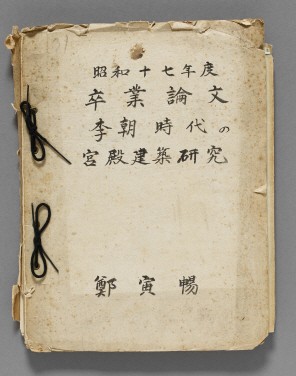 昭和十七年度
卒業論文
李朝時代の
宮殿建築研究
鄭寅暢